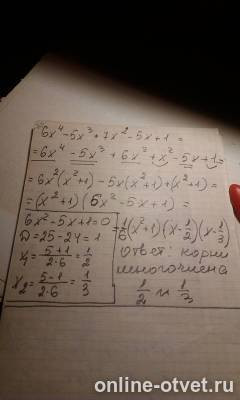 6x⁴-5x³+7x²-5x+1=
=6x⁴-5x³+6x³+x²-5x+1=
=6x²(x²+1)-5x(x²+1)+(x²+1)=
=(x²+1)(6x²-5x+1)=
6x²-5x+1=0
D=25-24=1
x₁=5+1/2·6=1/2
x₂=5-1/2·6=1/3
=1/6(x²+1)(x-1/2)(x-1/3)
Ответ: корни
многочлена
1/2 и 1/3
online-otvet.ru